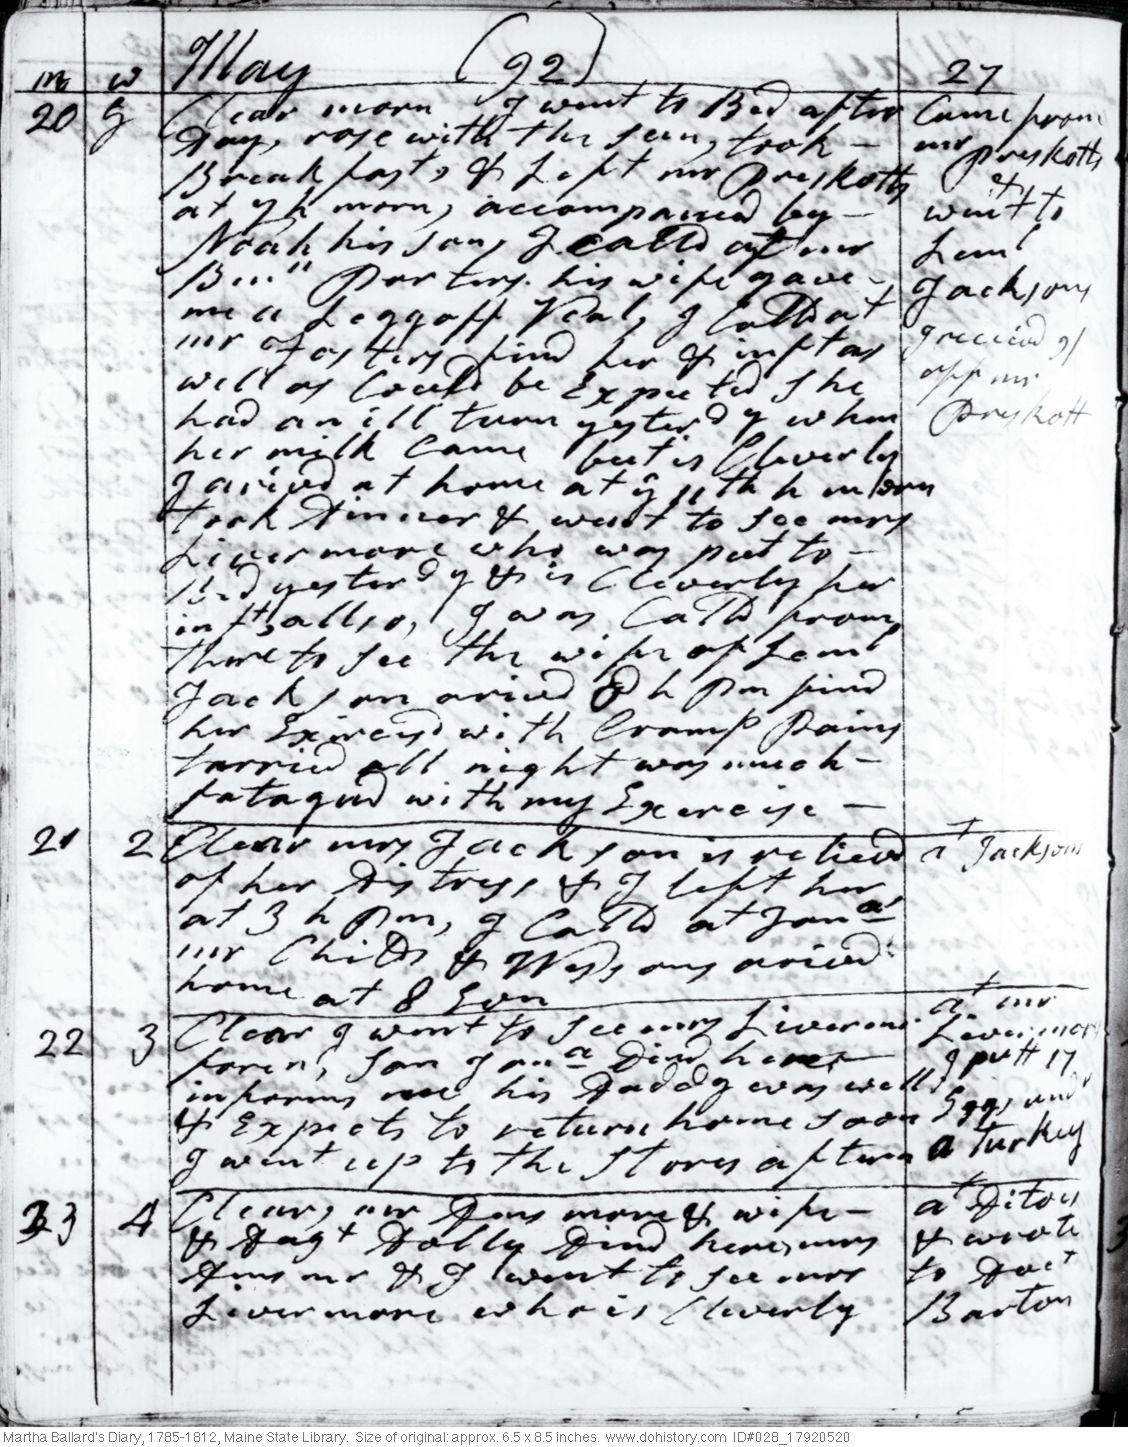 m w May (92) 27
20 g Clear morn I went to Bed after
Day, rose with the sun, took —
Breakfast, & Left mr Preskotts
at 7 h morn, accompanied by —
Noah his son, I calld at mr
Porters. his wife gave
me a Legg off Veal, I Calld at
mr Fosters find her & inft as
well as Could be Expected She
had an ill turn yesterdy when
her milk Came but is Cleverly
I arivd at home at 11th h morn
took Dinner & went to See mrs
Livermore who was put to —
Bed yesterdy & is Cleverly her
inft allso, I was Calld from
there to See the wife of Leml
Jackson arivd 8 h Pm find
her Exircisd with Cramp Pains
tarried all night was much —
fatagud with my Exercise —
Came from
mr Preskotts
&
went to
Leml
Jacksons
I receivd
off mr
Preskott
21 2 Clear mrs Jackson is relievd
of her Distress & I left her
at 3 h Pm, I Calld at Jona
mr Childs & Wessons arivd
home at 8 Evn
at Jacksons
22 3 Clear I went to See mrs Livermore
foren, Son Jona Dind here
informs me his Daddy was well
& Expects to return home Soon
I went up to the Stores aftern
at mr
Livermors
I putt 17
Eggs undr
a turkey
23 4 Clear, mr Dinsmore & wife —
& Dagt Dolly Dind here, mrs
Dinsmr & I went to See mrs
Livermore who is Cleverly
at Ditoes
& wrote
to Doct
Barton
Martha Ballard's Diary, 1785-1812, Maine State Library. Size of original: approx. 6.5 x 8.5 inches. www.dohistory.com ID#028_17920520